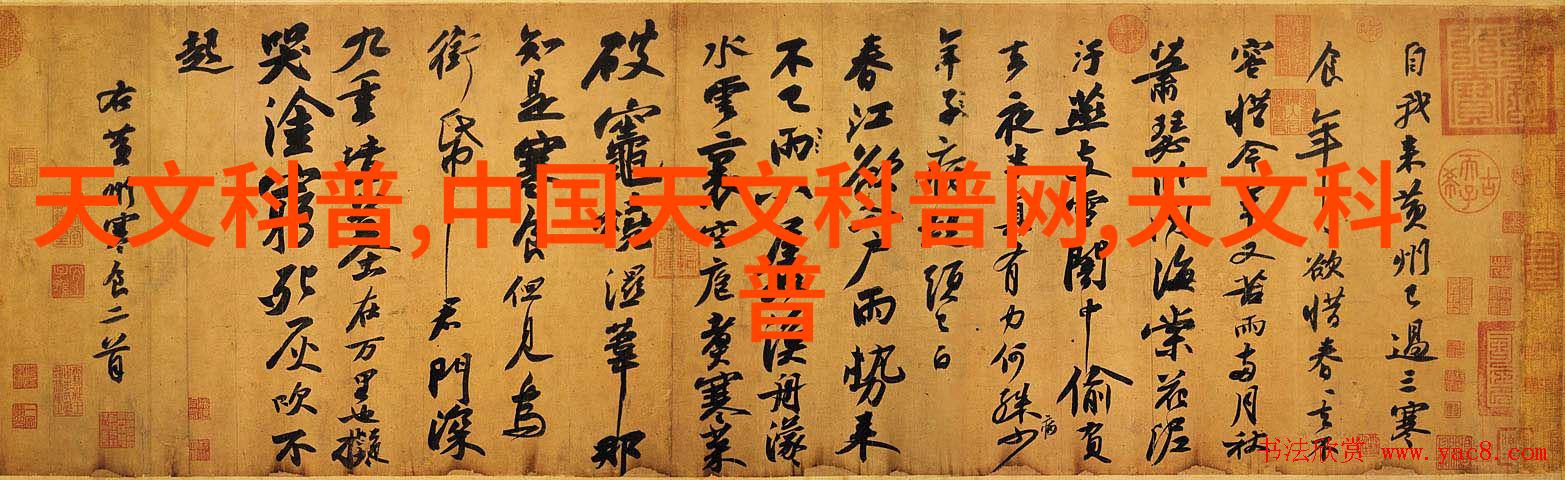 天文科普,中国天文科普网,天文科
普
自我来黄州已過三寒
食年〻欲惜春〻去不
容惜今年又苦雨兩月秋
蕭瑟卧聞海棠花泥
汙燕支雪闇中偷負
去夜半真有力何殊少
病
年子病起須已白
春江欲入戶雨勢来
不已雨小屋如漁舟濛〻
水雲裏空庖煮寒菜
破竈燒溼葦那
知是寒食但見烏
銜帋君門深
九重墳墓在万里也擬
哭塗窮死灰吹不
起
右黄州寒食二首
书法欣赏 www.yac8.com